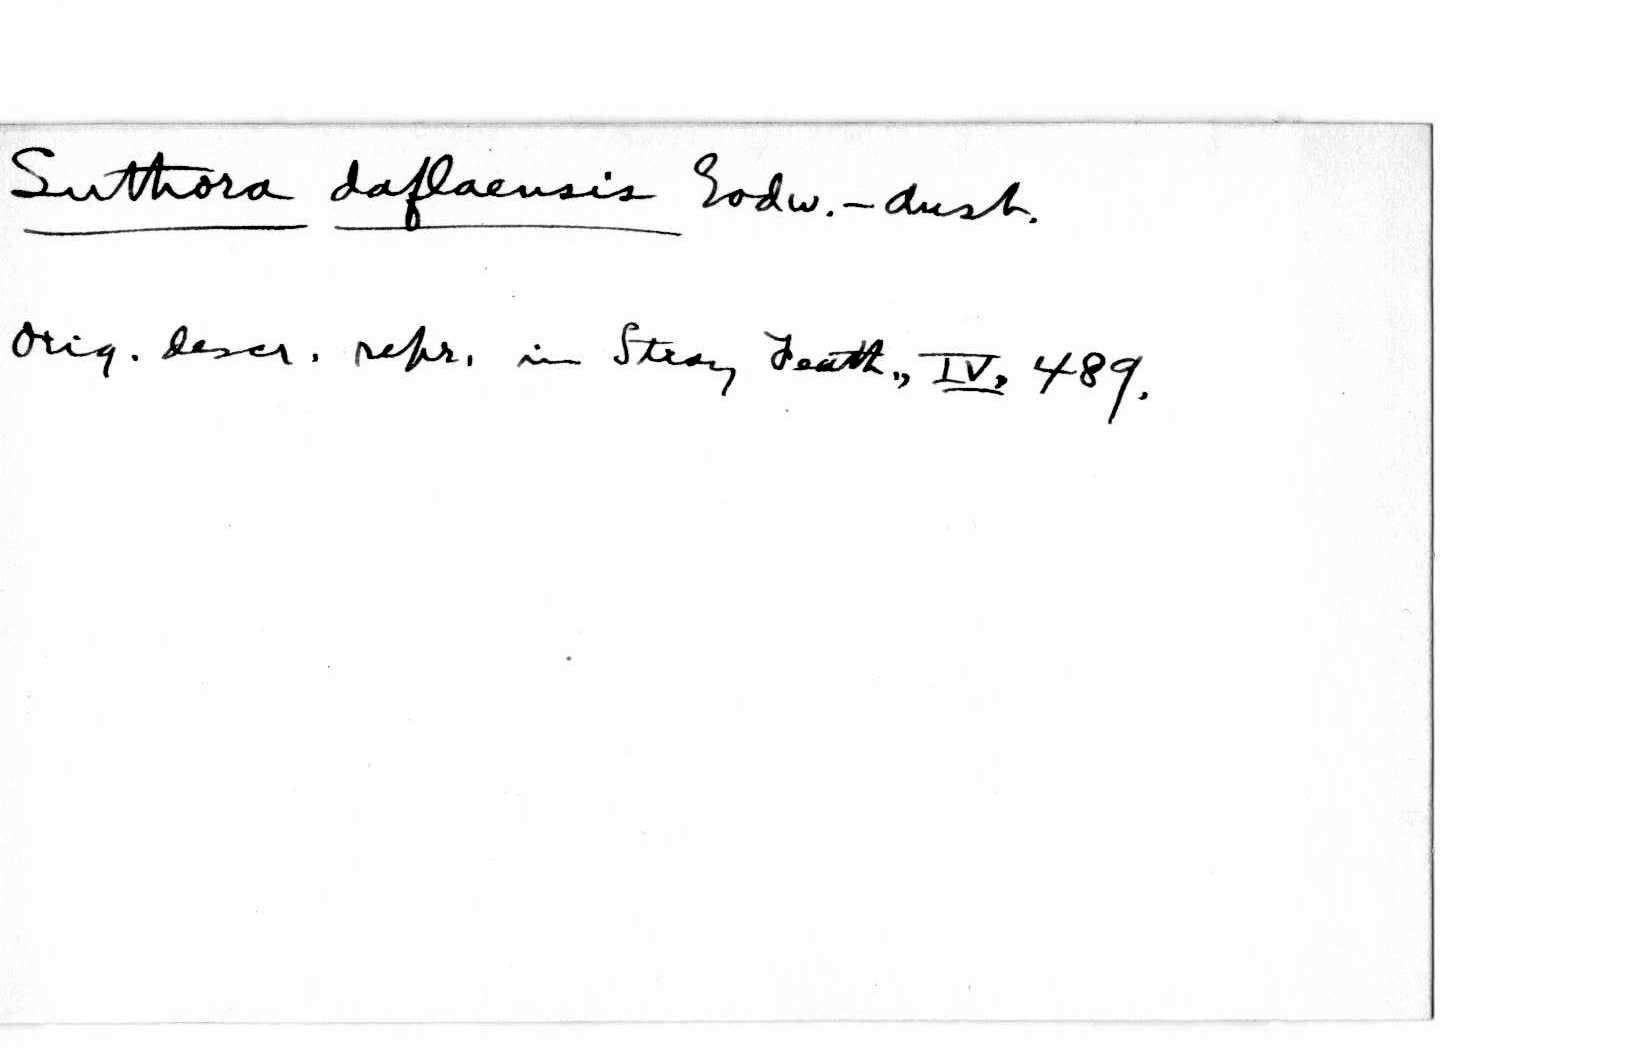 Suthora daflaensis Godw.-Aust.
Orig. descr. repr. in Stray Feath., IV, 489.